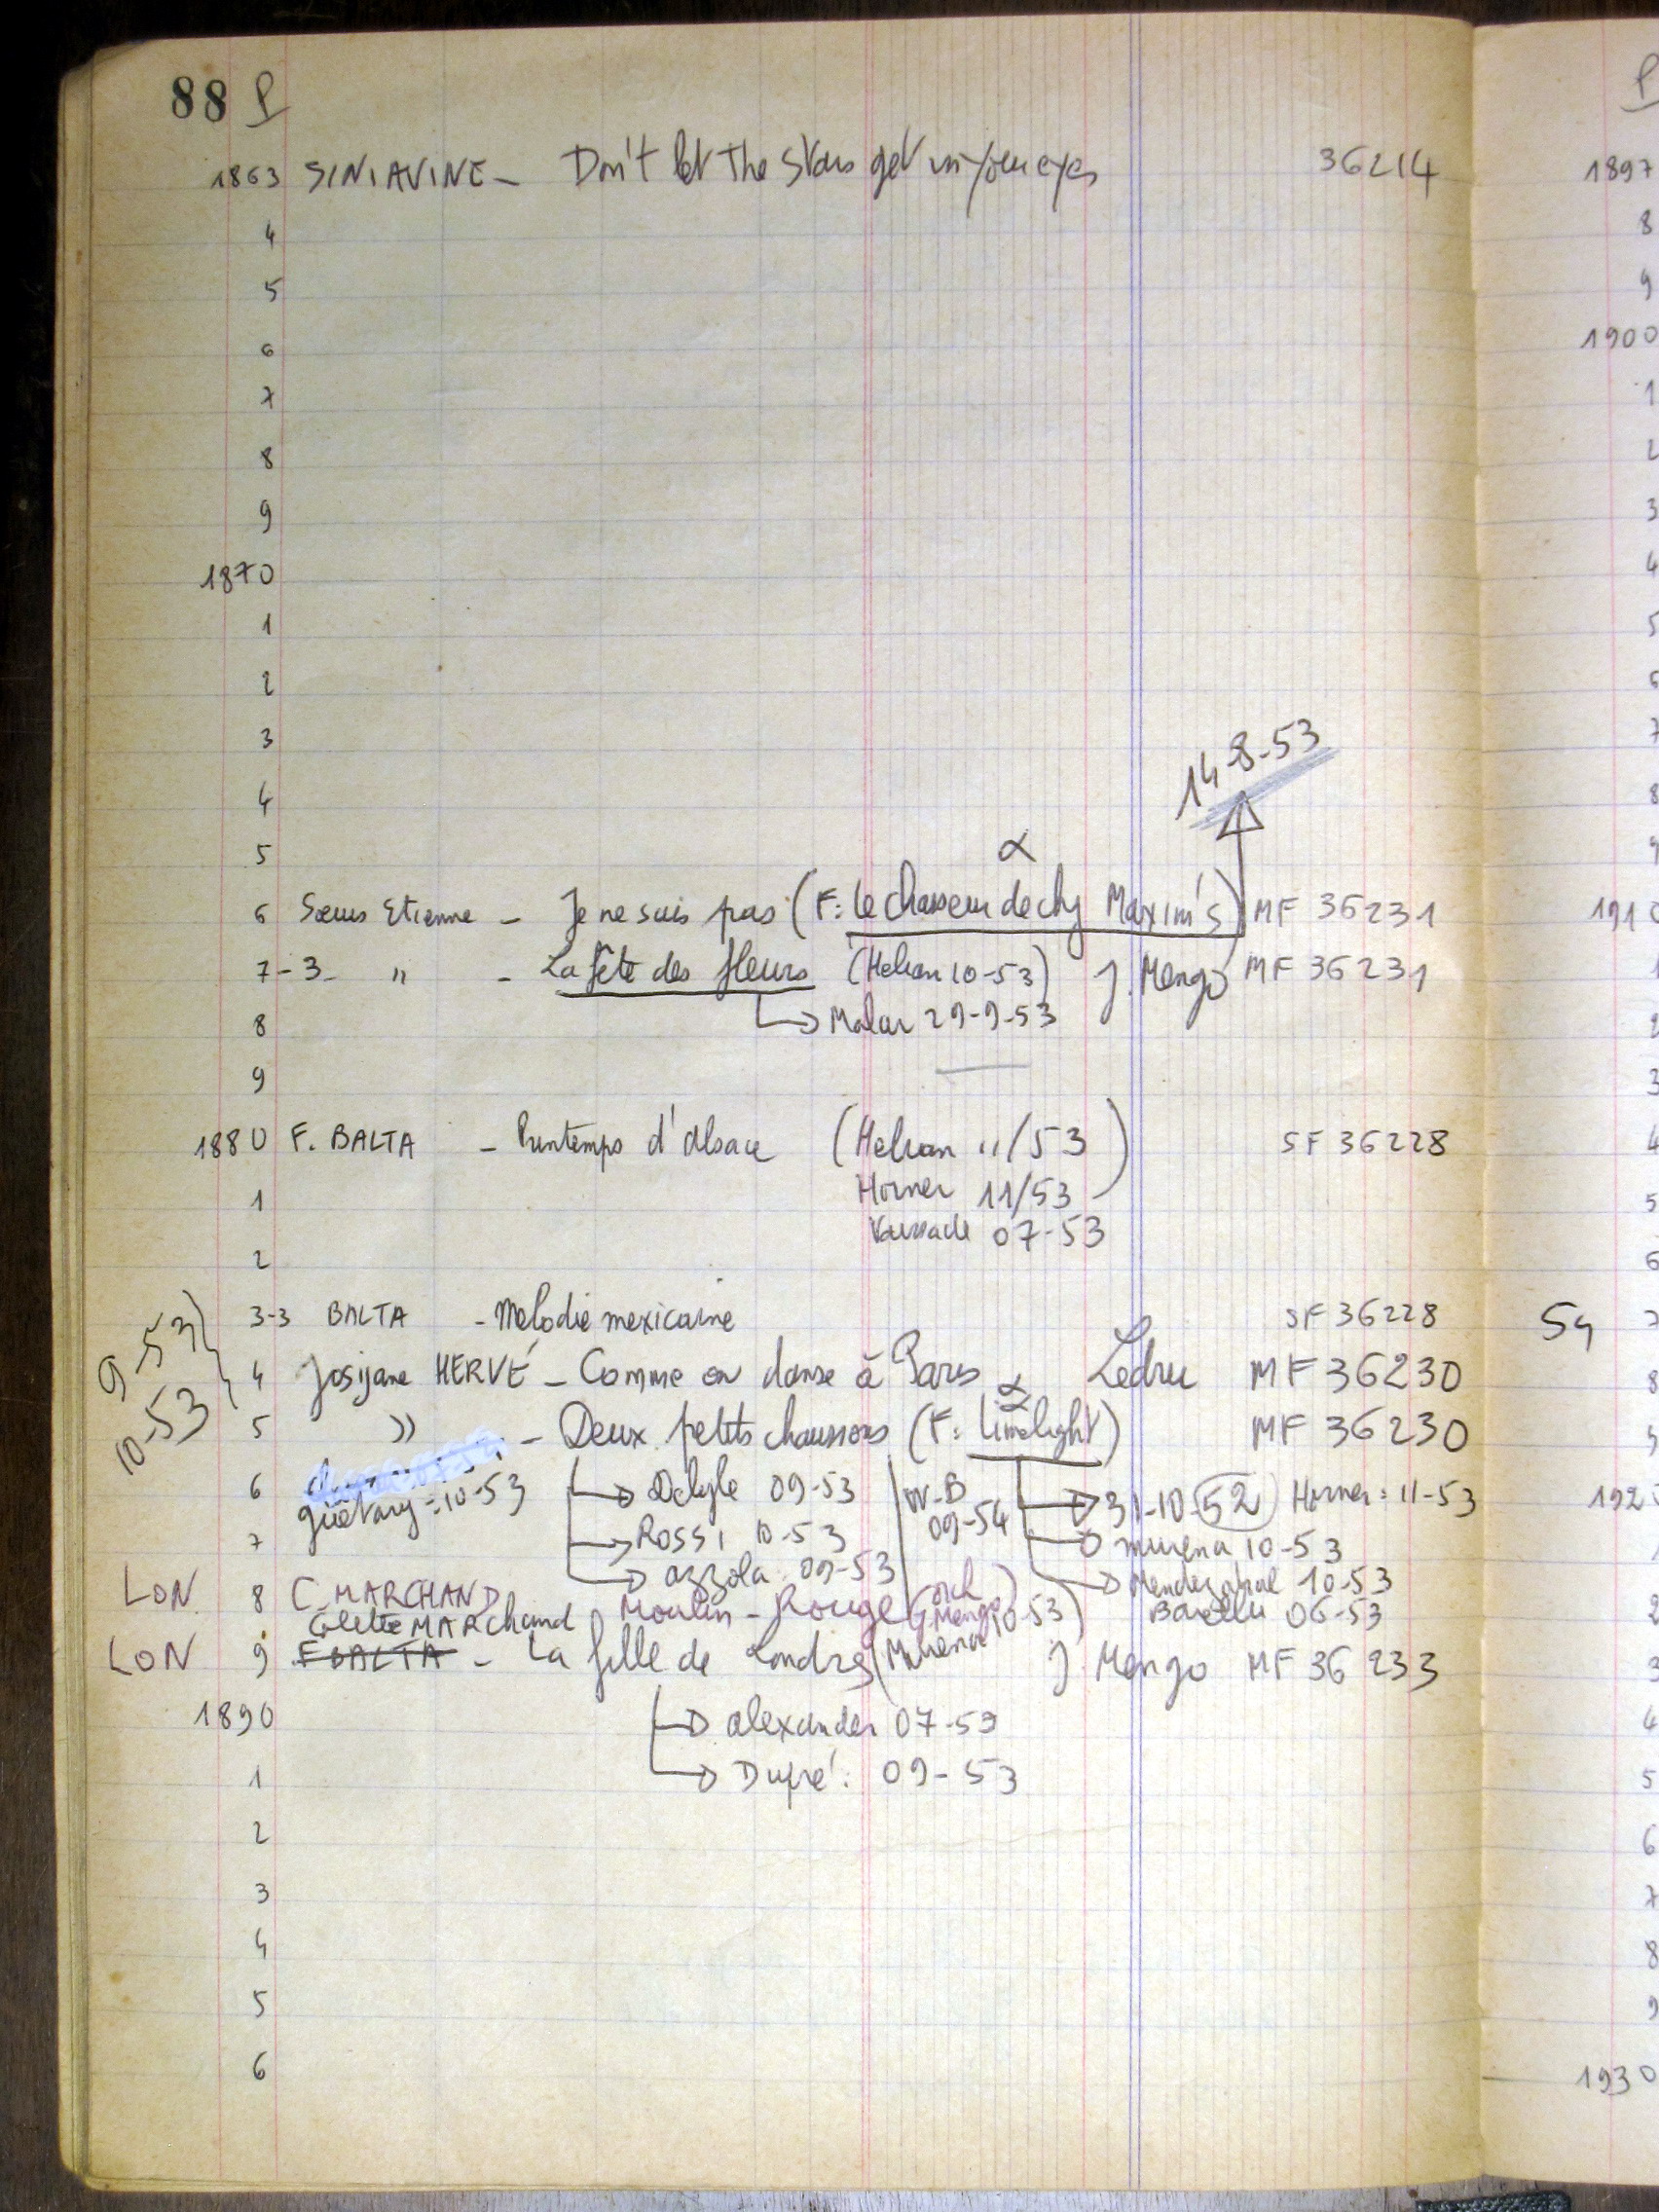 88 P
1863 SINIAVINE - Don't let the Stars get in your eyes 36214
4
5
6
7
8
9
1870
1
2
3
14-8-53
4
5 α
6 Sœurs Etienne - Je ne sais pas (F: Le chasseur de chez Maxim's) MF 36231
7-3- " - La fête des fleurs (Helian 10-53) J. Mengo MF 36231
8 Malar 29-9-53
9
1880 F. BALTA - Printemps d'alsace (Helian 11/53) SF 36228
1 Horner 11/53
Vaissade 07-53
2
3-3 BALTA - Mélodie mexicaine SF 36228
9-53
10-53
4 Josyane HERVÉ - Comme on danse à Paris Ledru MF 36230
α
5 " - Deux petits chaussons (F: Limelight) MF 36230
6 guétary = 10-53 Delyle 09-53 W-B 09-54 31-10-52 Horner: 11-53
7 Rossi 10-53 murena 10-53
azzola 09-53 Mendizabal 10-53
LON 8 C. MARCHAND Moulin-Rouge (orch J. Mengo) Barelli 06-53
Colette MARChand
LON 9 F BALTA - La fille de Londres (Murena 10-53) J. Mengo MF 36 233
1890 alexander 07-53
1 Dupré: 09-53
2
3
4
5
6
P
1897
8
9
1900
1
2
3
4
5
6
7
8
9
1910
1
2
3
4
5
6
54 7
8
9
1920
1
2
3
4
5
6
7
8
9
1930